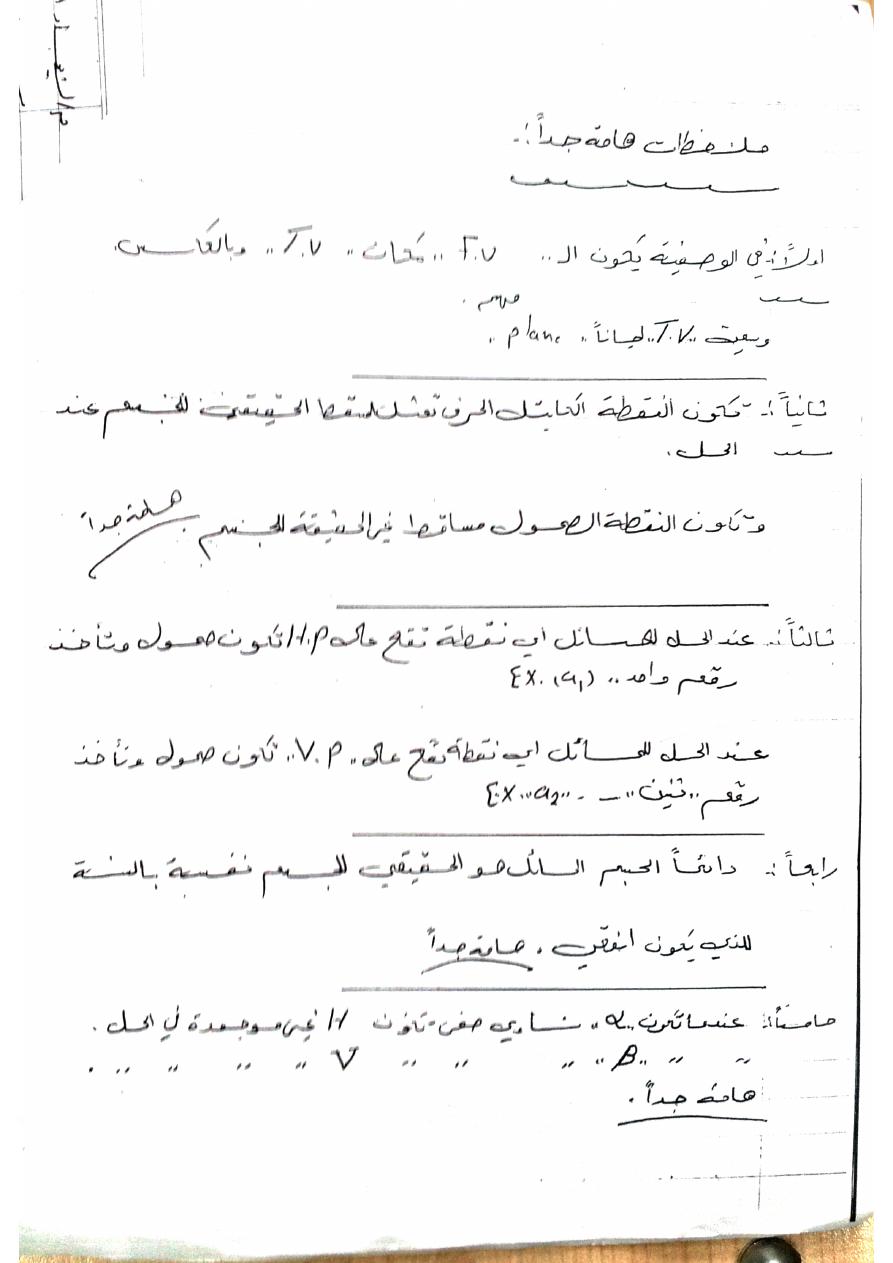 ملاحظات هامة جداً :-
اولاً :- في الوصفية يكون الـ ,, F.V ,, مكان ,, T.V ,, وبالعكس.
مهم .
وسميت ,, T.V ,, احياناً ,, plane ,,
ثانياً :- تكون النقطة الحرف تمثل المسقط الحقيقي للجسم عند
الحل .
وتكون النقطة المحمول مساقط غير الحقيقة للجسم .
هامة جداً
ثالثاً :- عند الحل للمسائل اي نقطة تقع على H.P تكون محمول وتأخذ
رقم واحد ,, (a1) .EX
عند الحل للمسائل اي نقطة تقع على ,, V.P ,, تكون محمول وتأخذ
رقم ,, اثنين ,, - ,, a2 ,, .EX
رابعاً :- دائماً الجسم المائل هو الحقيقي للجسم نفسه بالنسبة
للذي يكون افقي . هامة جداً
خامساً :- عندما تكون ,, α ,, تساوي صفر تكون H غير موجودة في الحل .
,, ,, ,, β ,, ,, ,, ,, V ,, ,, ,, ,, .
هامة جداً .